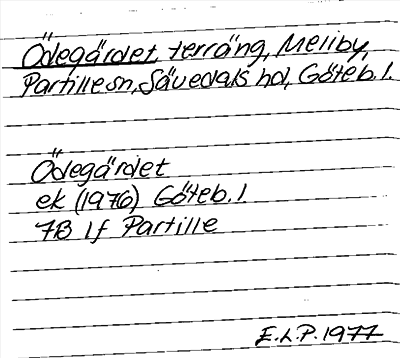 Ödegärdet, terräng, Mellby,
Partille sn, Sävedals hd, Göteb. l.
Ödegärdet
ek (1976) Göteb. l
7B 1f Partille
E.L.P. 1977